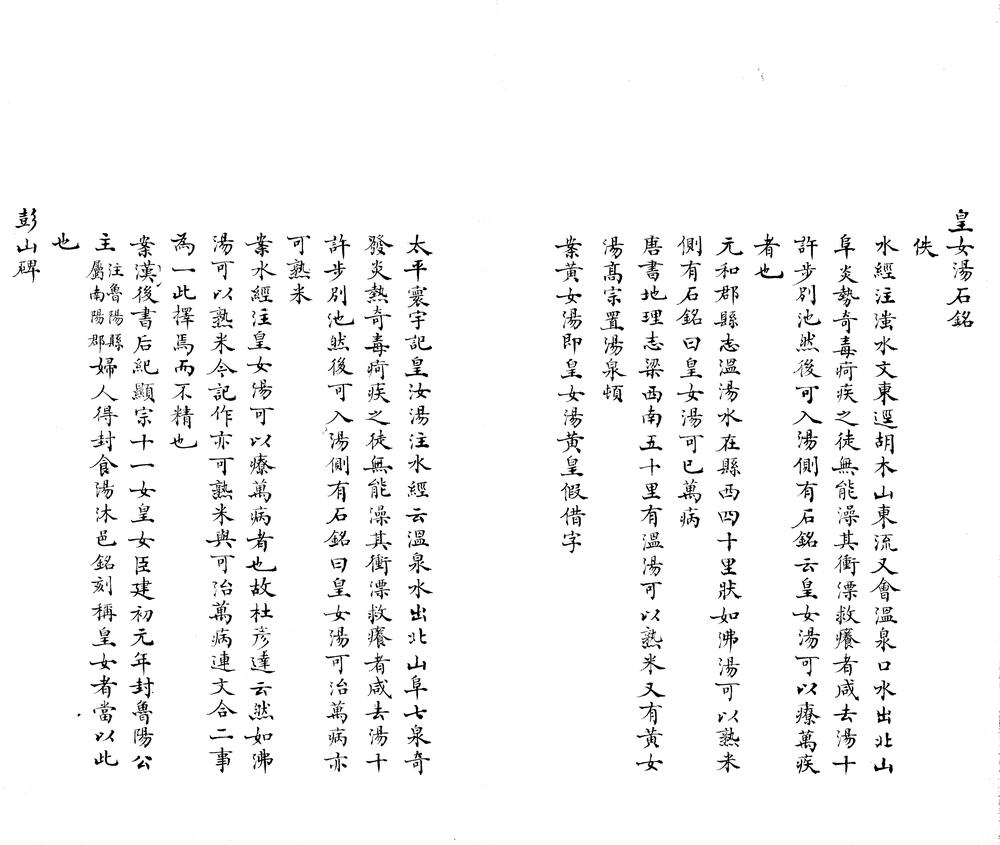 皇女湯石銘
佚
水經注滍水文東逕胡木山東流又會溫泉口水出北山
阜炎勢奇毒痾疾之徒無能澡其衝漂救癢者咸去湯十
許步別池然後可入湯側有石銘云皇女湯可以療萬疾
者也
元和郡縣志溫湯水在縣西四十里狀如沸湯可以熟米
側有石銘曰皇女湯可已萬病
唐書地理志梁西南五十里有溫湯可以熟米又有黃女
湯高宗置湯泉頓
案黃女湯即皇女湯黃皇假借字
太平寰宇記皇汝湯注水經云溫泉水出北山阜七泉奇
發炎熱奇毒痾疾之徒無能澡其衝漂救癢者咸去湯十
許步別池然後可入湯側有石銘曰皇女湯可治萬病亦
可熟米
案水經注皇女湯可以療萬病者也故杜彥達云然如沸
湯可以熟米今記作亦可熟米與可治萬病連文合二事
為一此擇焉而不精也
案漢後書后紀顯宗十一女皇女臣建初元年封魯陽公
主注魯陽縣屬南陽郡婦人得封食湯沐邑銘刻稱皇女者當以此
也
彭山碑